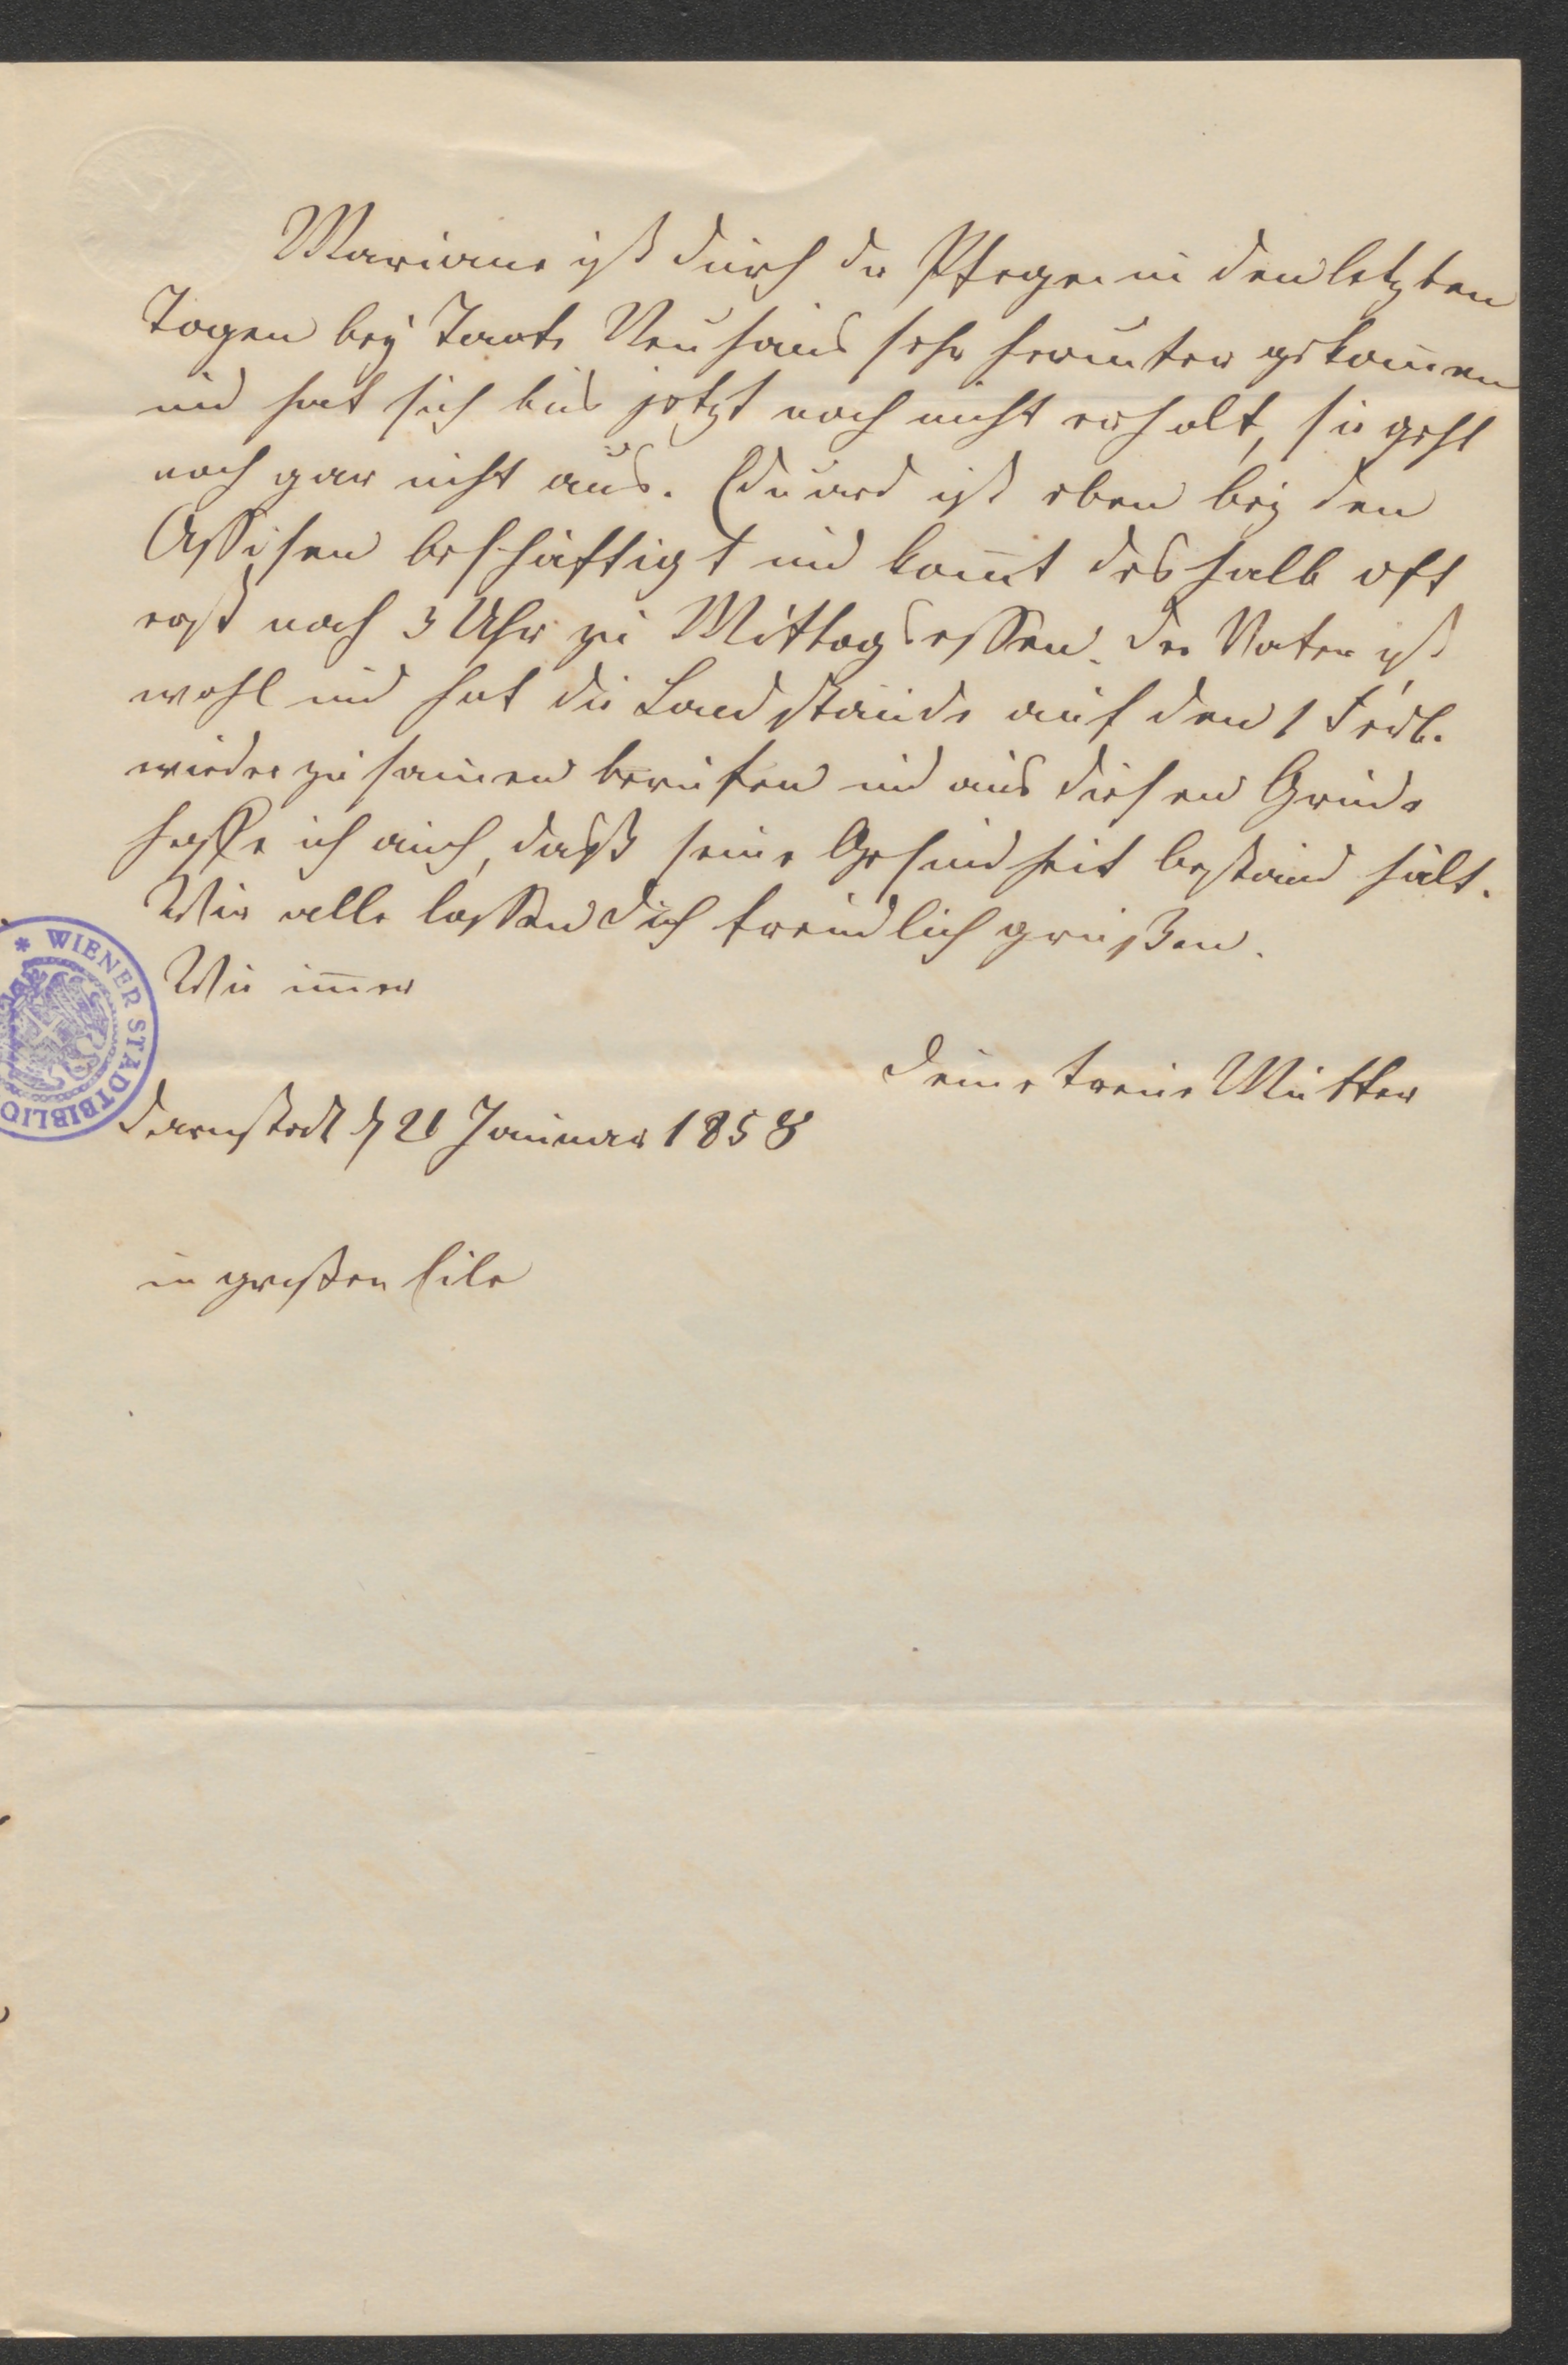 Mariane ist durch die Pflege in den letzten
Tagen bey Tante Neuhaus sehr herunter gekom̄en
und hat sich bis jetzt noch nicht erholt, sie geht
noch gar nicht aus. Eduard ist eben bey den
Assisen beschäftigt und kom̄t deshalb oft
erst nach 3 Uhr zu Mittagsessen. Der Vater ist
wohl und hat die Landstände auf den 1 Febr.
wieder zusam̄en berufen und aus diesen Grunde
hoffe ich auch, daß seine Gesundheit bestand hält.
Wir alle lassen dich freundlich grüßen.
Wie im̄er
Deine treue Mutter
Darmstadt d 21 Januar 1858
in großer Eile
* WIENER STADTBIBLIO